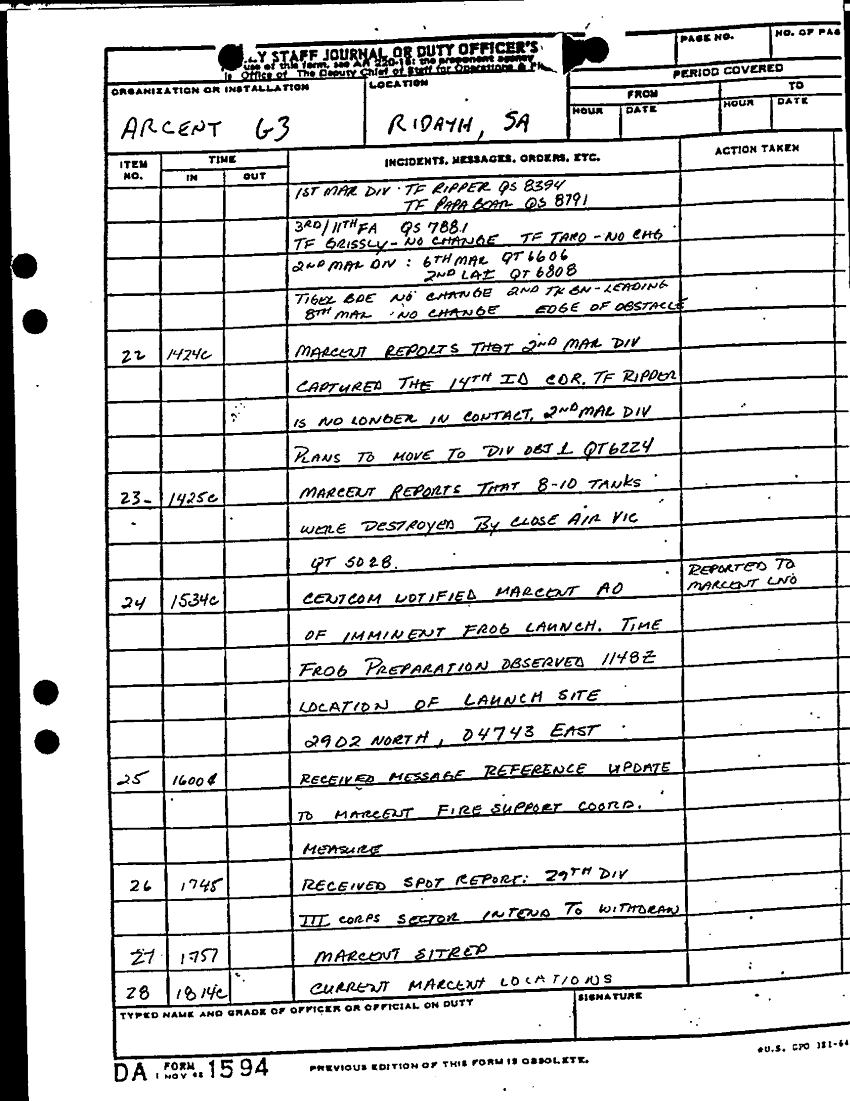 Y STAFF JOURNAL OR DUTY OFFICER'S
use of this form, see AR 220-15; the proponent agency
is Office of The Deputy Chief of Staff for Operations & Pl
PAGE NO.
NO. OF PAG
ORGANIZATION OR INSTALLATION
LOCATION
PERIOD COVERED
FROM
TO
HOUR
DATE
HOUR
DATE
ARCENT G3
RIDAYH, SA
ITEM NO.
TIME
IN
OUT
INCIDENTS, MESSAGES, ORDERS, ETC.
ACTION TAKEN
1ST MAR DIV : TF RIPPER QS 8394
TF PAPA BEAR QS 8791
3RD/11TH FA QS 7881
TF GRISSLY - NO CHANGE TF TARO - NO CHG
2ND MAR DIV : 6TH MAR QT 6606
2ND LAI QT 6808
TIGER BDE NO CHANGE 2ND TK BN - LEADING
8TH MAR NO CHANGE EDGE OF OBSTACLE
22 1424C MARCENT REPORTS THAT 2ND MAR DIV
CAPTURED THE 14TH ID CDR. TF RIPPER
IS NO LONGER IN CONTACT. 2ND MAR DIV
PLANS TO MOVE TO DIV OBJ 1 QT6224
23 - 1425C MARCENT REPORTS THAT 8-10 TANKS
WERE DESTROYED BY CLOSE AIR VIC
QT 5028.
24 1534C CENTCOM NOTIFIED MARCENT AO
REPORTED TO
MARCENT LNO
OF IMMINENT FROG LAUNCH. TIME
FROG PREPARATION OBSERVED 1148Z
LOCATION OF LAUNCH SITE
2902 NORTH, 04743 EAST
25 1600C RECEIVED MESSAGE REFERENCE UPDATE
TO MARCENT FIRE SUPPORT COORD.
MEASURE
26 1745 RECEIVED SPOT REPORT: 29TH DIV
III CORPS SECTOR INTEND TO WITHDRAW
27 1757 MARCENT SITREP
28 1814C CURRENT MARCENT LOCATIONS
TYPED NAME AND GRADE OF OFFICER OR OFFICIAL ON DUTY
SIGNATURE
DA FORM 1 NOV 62 1594
PREVIOUS EDITION OF THIS FORM IS OBSOLETE.
U.S. GPO